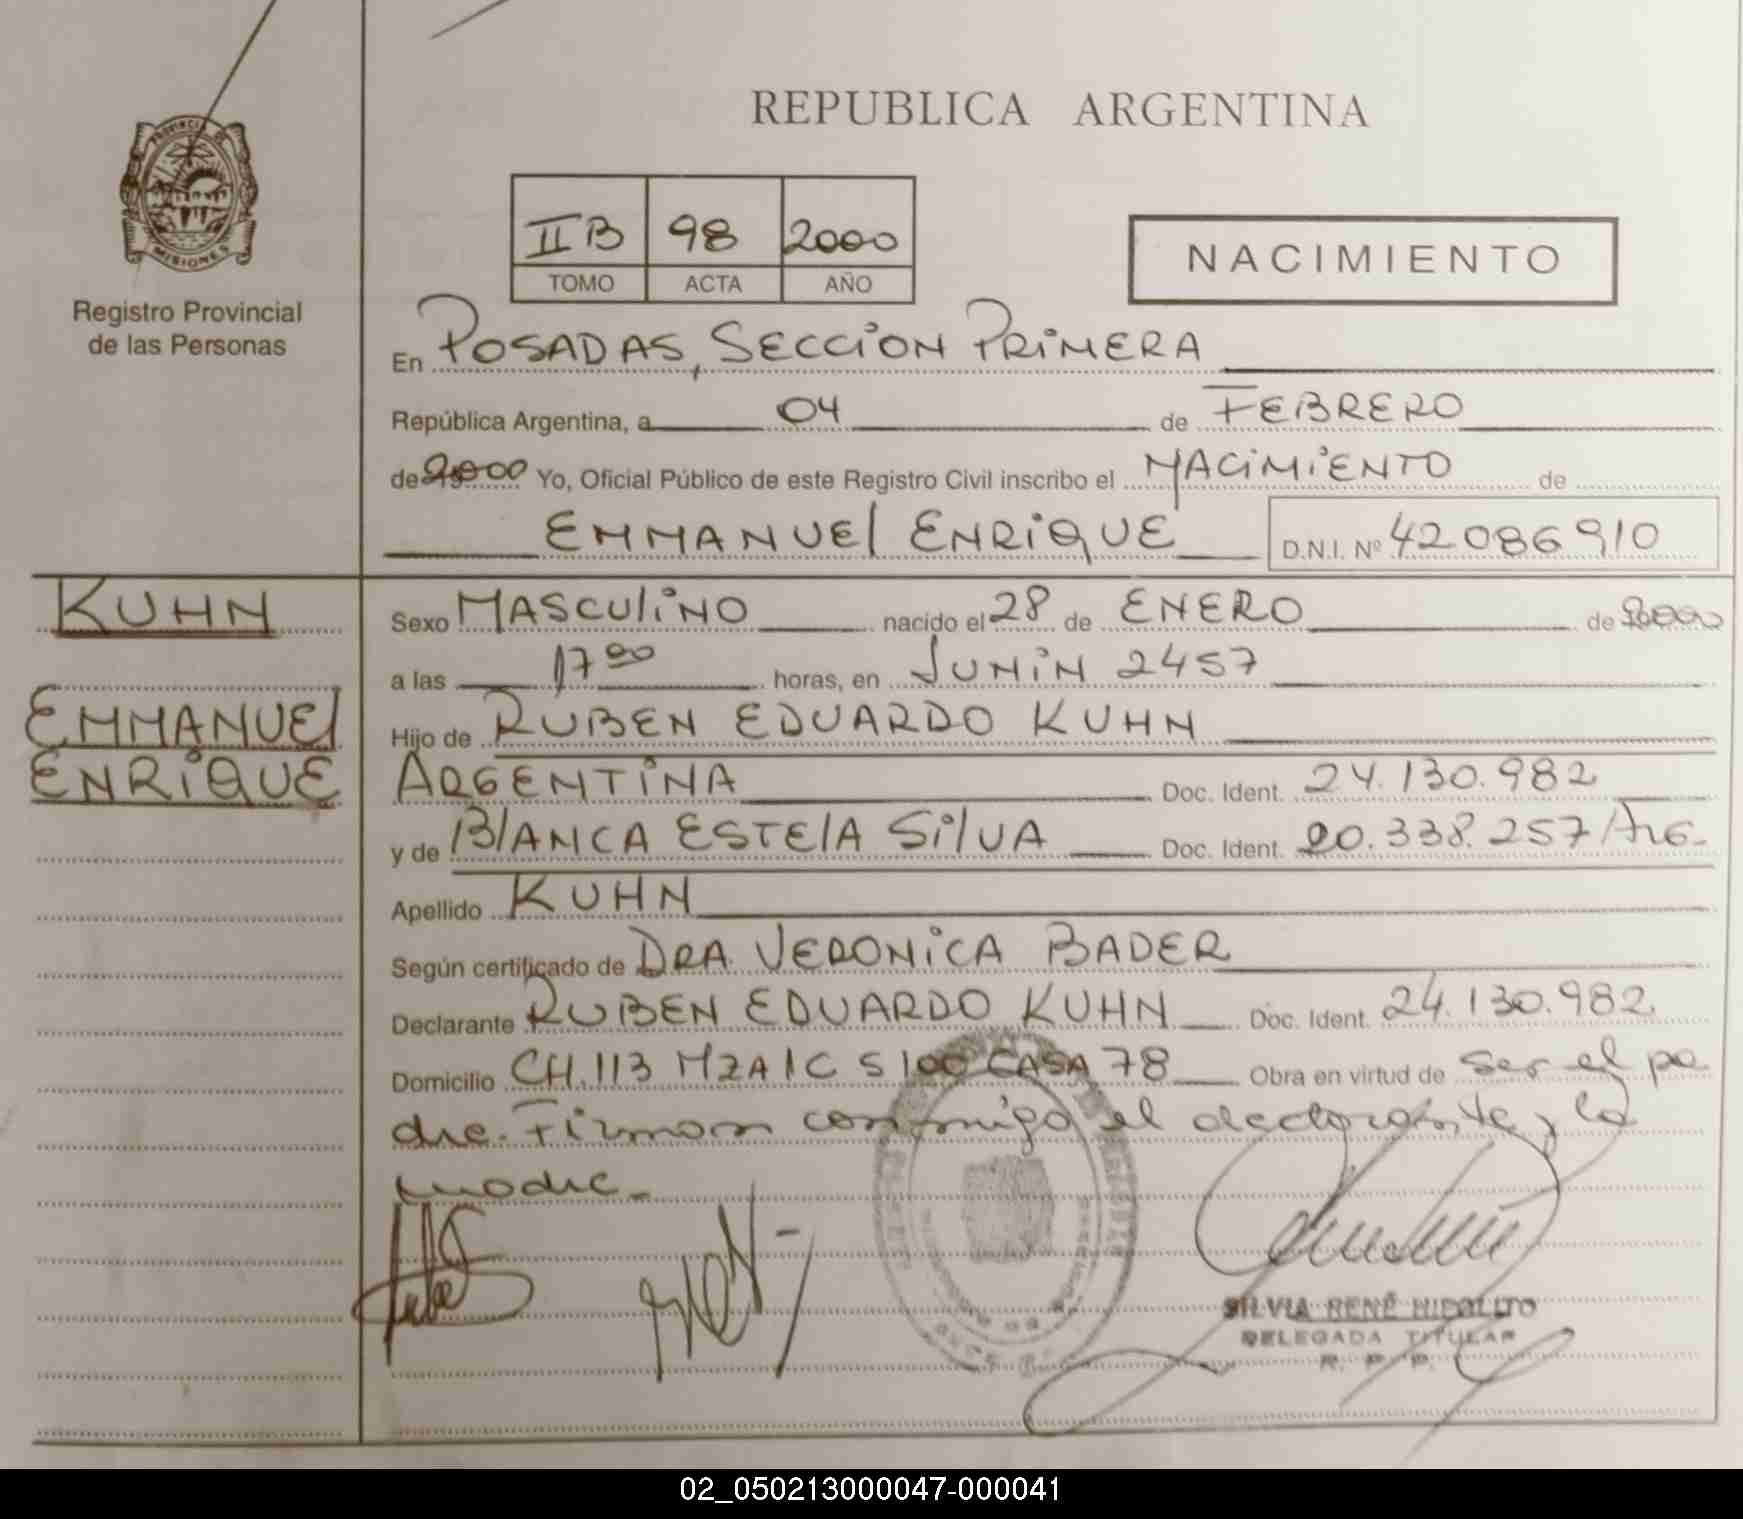 REPUBLICA ARGENTINA
PROVINCIA DE
MISIONES
Registro Provincial
de las Personas
IIB 98 2000
TOMO ACTA AÑO
NACIMIENTO
En POSADAS, SECCION PRIMERA
República Argentina, a 04 de FEBRERO
de 2000 Yo, Oficial Público de este Registro Civil inscribo el NACIMIENTO de
EMMANUEL ENRIQUE D.N.I. Nº 42086910
KUHN
EMMANUEL
ENRIQUE
Sexo MASCULINO nacido el 28 de ENERO de 2000
a las 17 00 horas, en JUNIN 2457
Hijo de RUBEN EDUARDO KUHN
ARGENTINA Doc. Ident. 24.130.982
y de BLANCA ESTELA SILVA Doc. Ident. 20.338.257/ARG.
Apellido KUHN
Según certificado de DRA. VERONICA BADER
Declarante RUBEN EDUARDO KUHN Doc. Ident. 24.130.982
Domicilio CH.113 MZA 1C S 100 CASA 78 Obra en virtud de ser el pa
dre. Firman conmigo el declarante y la
madre.
SILVIA RENÉ HIPOLITO
DELEGADA TITULAR
R. P. P.
02_050213000047-000041